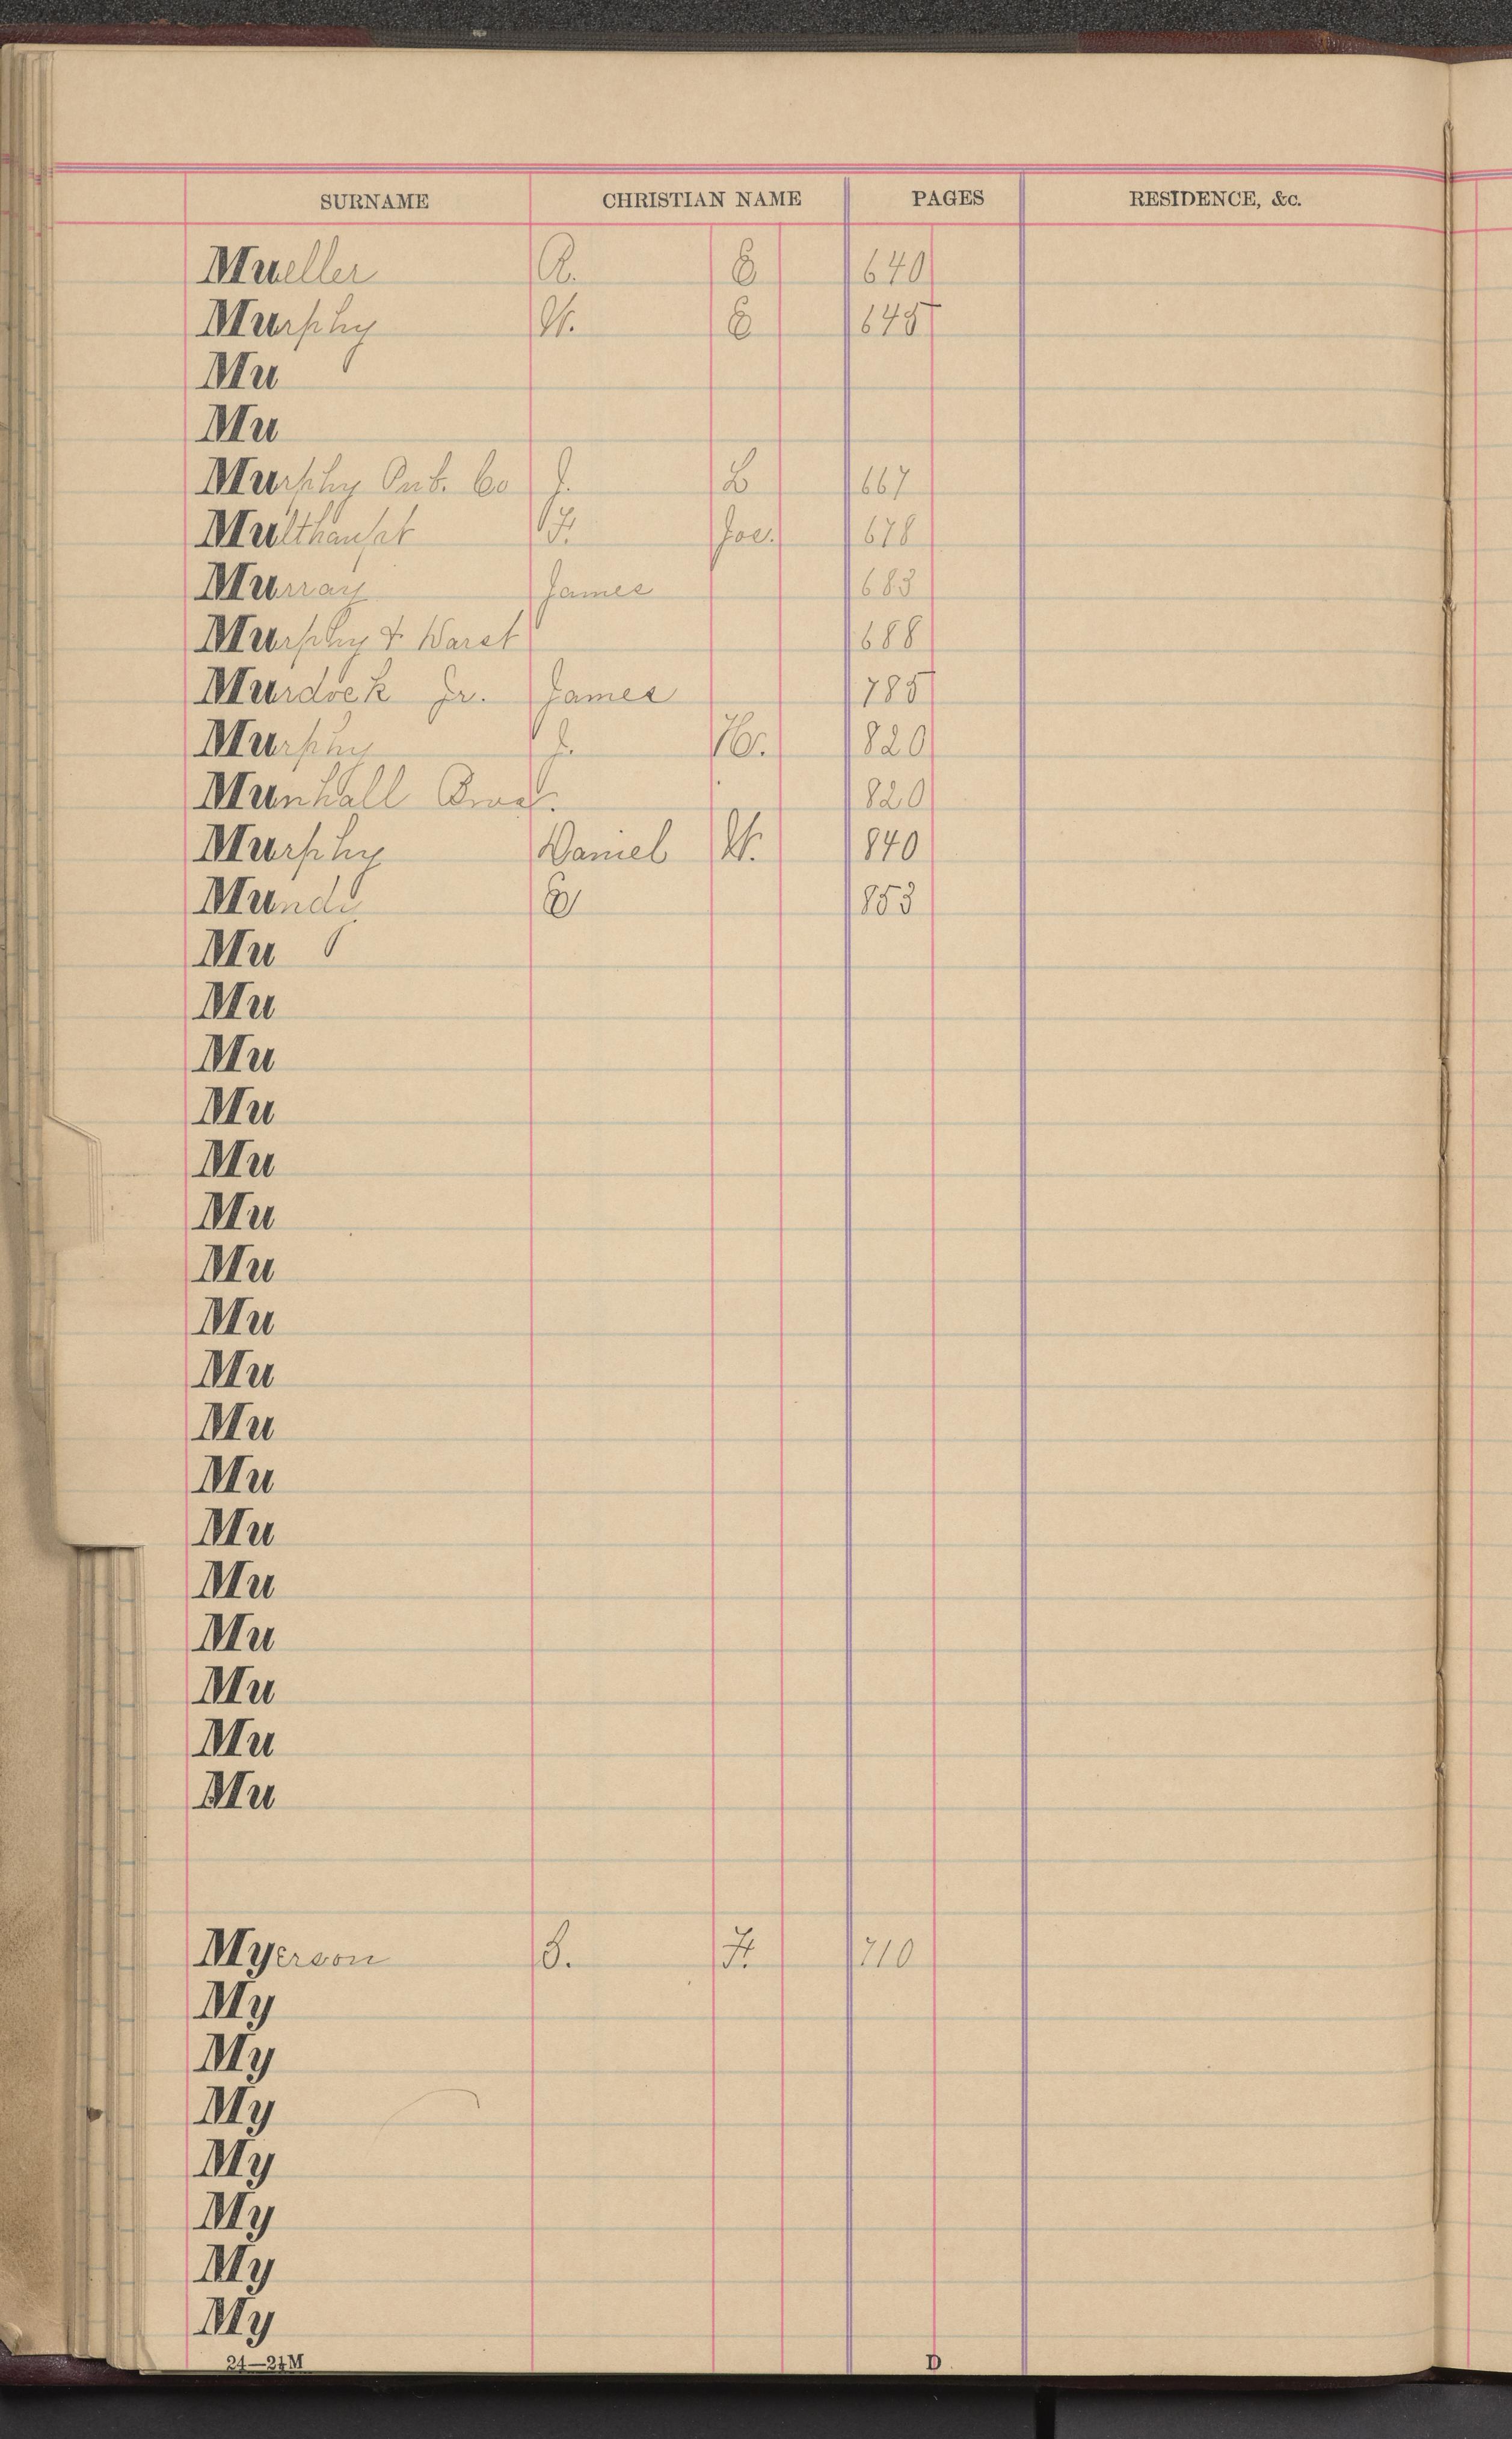 SURNAME CHRISTIAN NAME PAGES RESIDENCE, &c.
Mueller A. E 640
Murphy W. E 645
Mu
Mu
Murphy Pub. Co J. L 667
Multhaupt F. Jos. 678
Murray James 683
Murphy & 688
Murdock Jr. James 785
Murphy J. H. 820
Munhall Bros. 820
Murphy Daniel W. 840
Mundy E 853
Mu
Mu
Mu
Mu
Mu
Mu
Mu
Mu
Mu
Mu
Mu
Mu
Mu
Mu
Mu
Mu
Mu
Myerson S. F. 710
My
My
My
My
My
My
My
24—24M D